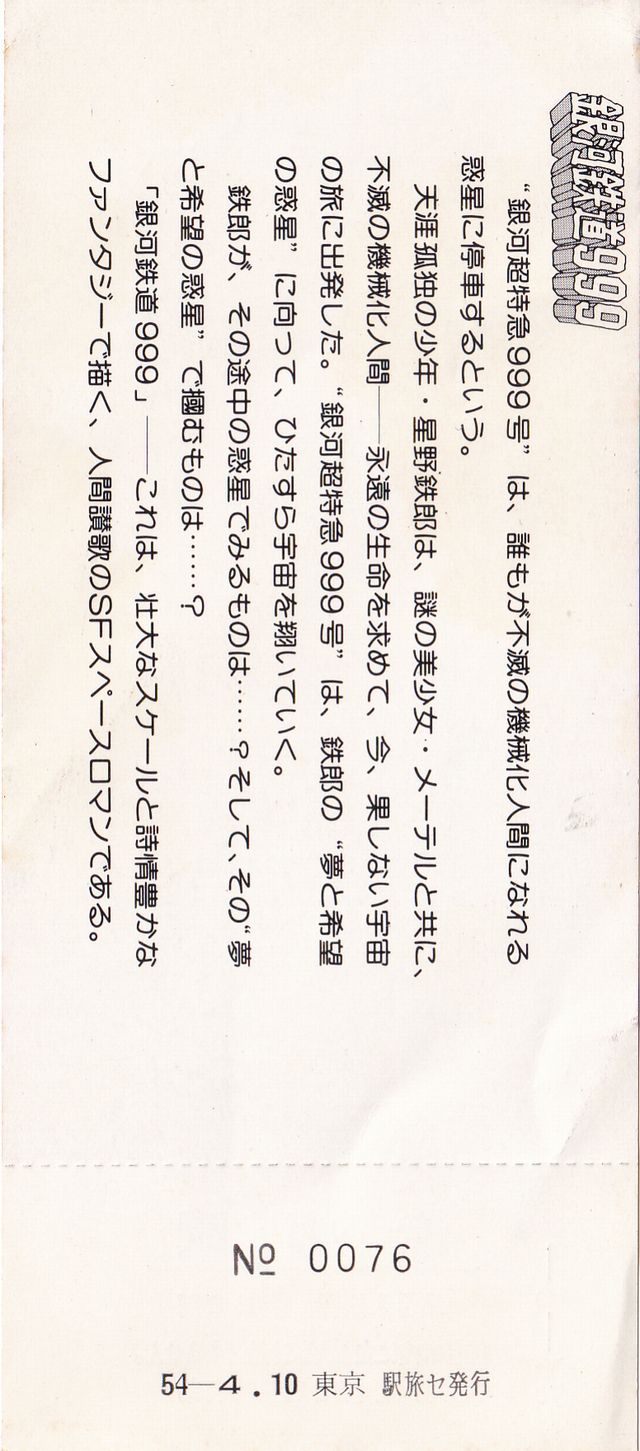 銀河鉄道999
“銀河超特急999号”は、誰もが不滅の機械化人間になれる
惑星に停車するという。
天涯孤独の少年・星野鉄郎は、謎の美少女・メーテルと共に、
不滅の機械化人間——永遠の生命を求めて、今、果しない宇宙
の旅に出発した。“銀河超特急999号”は、鉄郎の“夢と希望
の惑星”に向って、ひたすら宇宙を翔いていく。
鉄郎が、その途中の惑星でみるものは……？そして、その“夢
と希望の惑星”で摑むものは……？
「銀河鉄道999」——これは、壮大なスケールと詩情豊かな
ファンタジーで描く、人間讃歌のSFスペースロマンである。
№ 0076
54—4.10 東京 駅旅セ発行